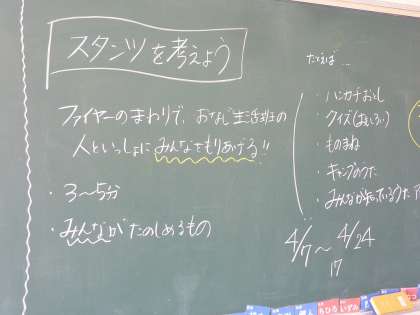 スタンツを考えよう
ファイヤーのまわりで、おなじ生活班の
人といっしょに みんなをもりあげる!!
・3〜5分
・みんながたのしめるもの
たとえば…
・ハンカチおとし
・クイズ
・ものまね
・キャンプのうた
・みんなが知っているうた
4/7〜4/24
17